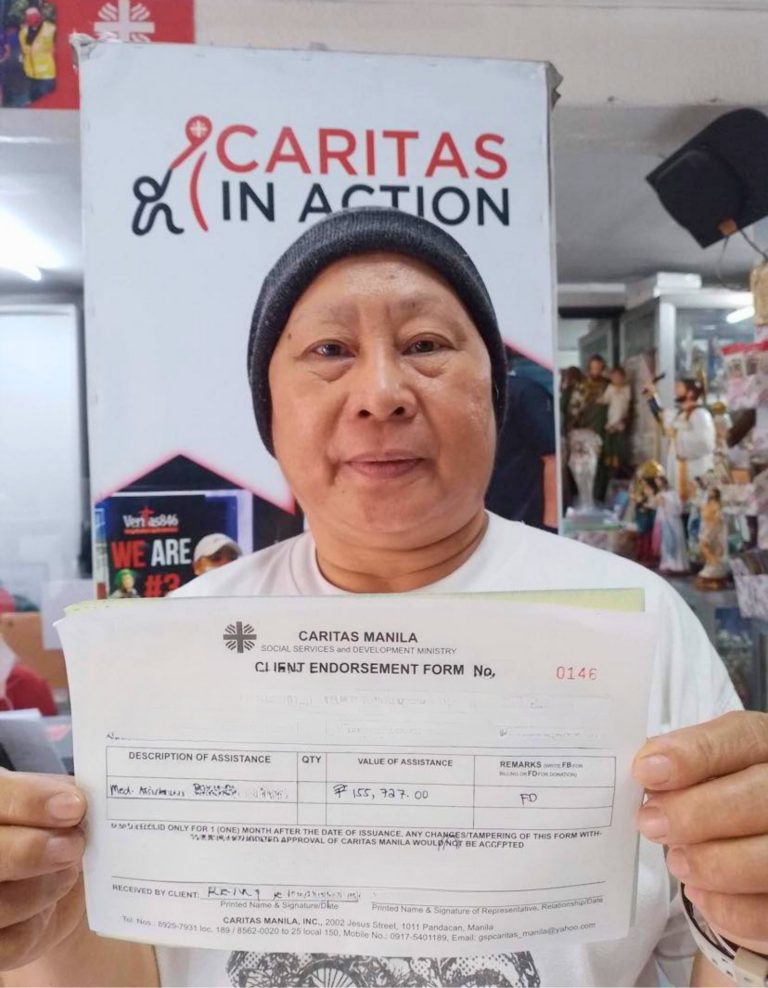 CARITAS
IN ACTION
Veritas846
WE ARE
#3
CARITAS MANILA
SOCIAL SERVICES and DEVELOPMENT MINISTRY
CLIENT ENDORSEMENT FORM No,
0146
DESCRIPTION OF ASSISTANCE QTY VALUE OF ASSISTANCE REMARKS (WRITE FB FOR
BILLING OR FD FOR DONATION)
Med. ₱ 155,727.00 FD
ONLY FOR 1 (ONE) MONTH AFTER THE DATE OF ISSUANCE, ANY CHANGES/TAMPERING OF THIS FORM WITH-
APPROVAL OF CARITAS MANILA WOULD NOT BE ACCEPTED
RECEIVED BY CLIENT:
Printed Name & Signature/Date Printed Name & Signature of Representative, Relationship/Date
CARITAS MANILA, INC., 2002 Jesus Street, 1011 Pandacan, Manila
Tel. Nos.: 8925-7931 loc. 189 / 8562-0020 to 25 local 150, Mobile No.: 0917-5401189, Email: gspcaritas_manila@yahoo.com